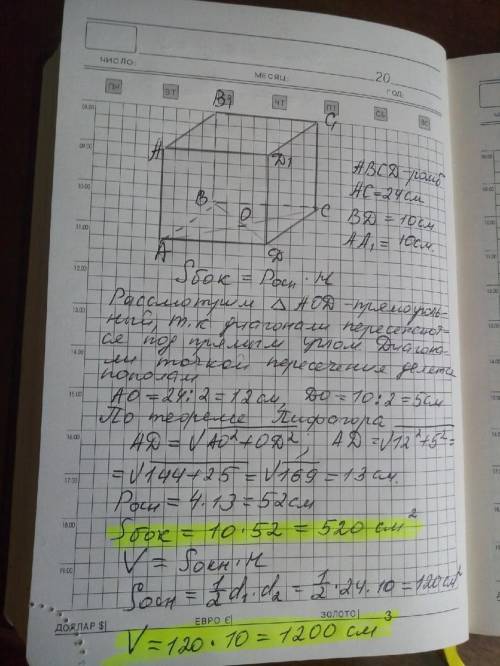 ЧИСЛО:
МЕСЯЦ:
20
ГОД:
ПН ВТ ЧТ ПТ СБ ВС
08.00
09.00
10.00
11.00
12.00
13.00
14.00
15.00
16.00
17.00
18.00
19.00
B1
C1
A
D1
B
O
C
A
D
ABCD-ромб
AC=24см
BD=10см
AA₁=10см.
Sбок = Pосн · H
Рассмотрим △ AOD-прямоуголь-
ный, т.к диагонали пересекают-
ся под прямым углом Диагона-
ли точкой пересечения делятся
пополам
AO=24:2=12см, DO=10:2=5см
По теореме Пифогора
AD=√AO²+OD²; AD=√12²+5²=
=√144+25=√169=13см.
Pосн=4·13=52см
Sбок=10·52=520 см²
V=Sокн·H
Sосн=½d₁·d₂=½·24·10=120см²
ДОЛЛАР $ ЕВРО € ЗОЛОТО 3
V=120·10=1200 см